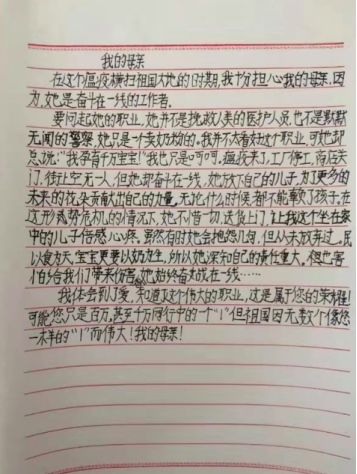 我的母亲
在这个瘟疫横扫祖国大地的时期,我十分担心我的母亲,因
为,她是奋斗在一线的工作者。
要问起她的职业,她并不是挽救人类的医护人员,也不是默默
无闻的警察,她只是一个卖奶粉的。我并不太看好这个职业,可她却
总说:"我带有千万宝宝!"我也只是呵呵。瘟疫来了,工厂停工,商店关
门,街上空无一人,但她却奋斗在一线,她放下自己的儿子,为了更多的
未来的花朵贡献出自己的力量。无论什么时候,都不能事了孩子,在
这形式势危机的情况下,她不惜一切,送货上门,让我这个坐在家
中的儿子倍感心疼。虽然有时她会抱怨几句,但从未放弃过。民
以食为天,宝宝更要以奶为生,所以她深知自己的责任重大。但也害
怕给我们带来伤害,她始终奋战在一线……
我体会到了爱,知道了这个伟大的职业,这是属于您的荣耀!
可能您只是百万,甚至千万同行中的一个"1"但祖国因无数个像您
一样的"1"而伟大!我的母亲!